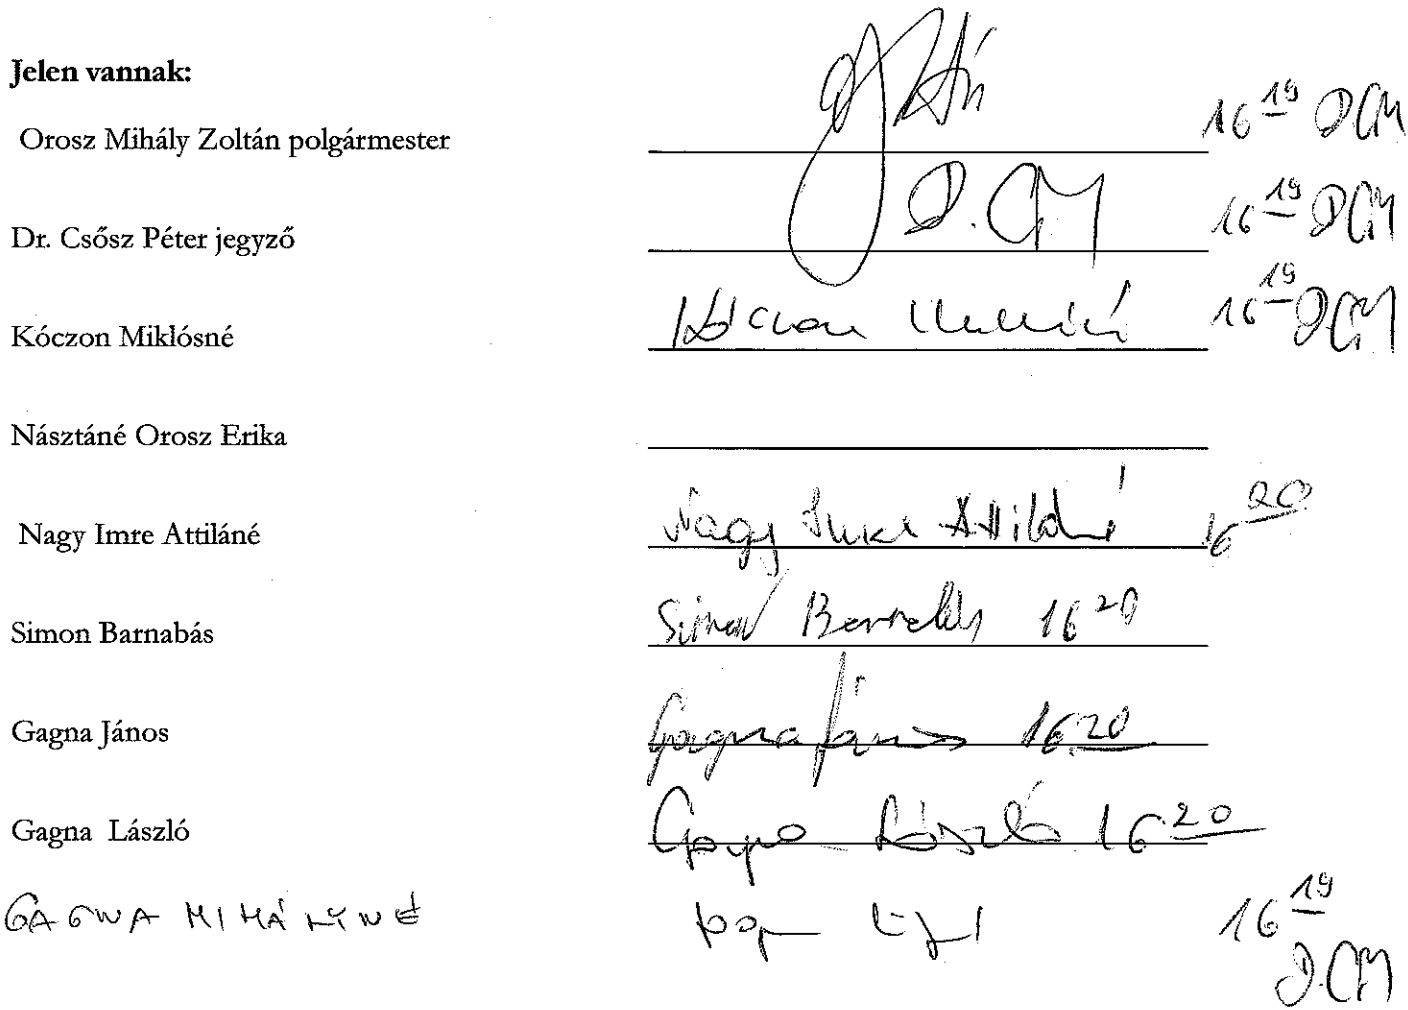 Jelen vannak:
Orosz Mihály Zoltán polgármester 16 19 D.CM
Dr. Csősz Péter jegyző D.CM 16 19 D.CM
Kóczon Miklósné Kóczon 16 19 D.CM
Násztáné Orosz Erika
Nagy Imre Attiláné Nagy Imre Attiláné 16 20
Simon Barnabás Simon Barnabás 16 20
Gagna János Gagna János 16 20
Gagna László Gagna László 16 20
GAGNA MIHÁLYNÉ 16 19
D.CM